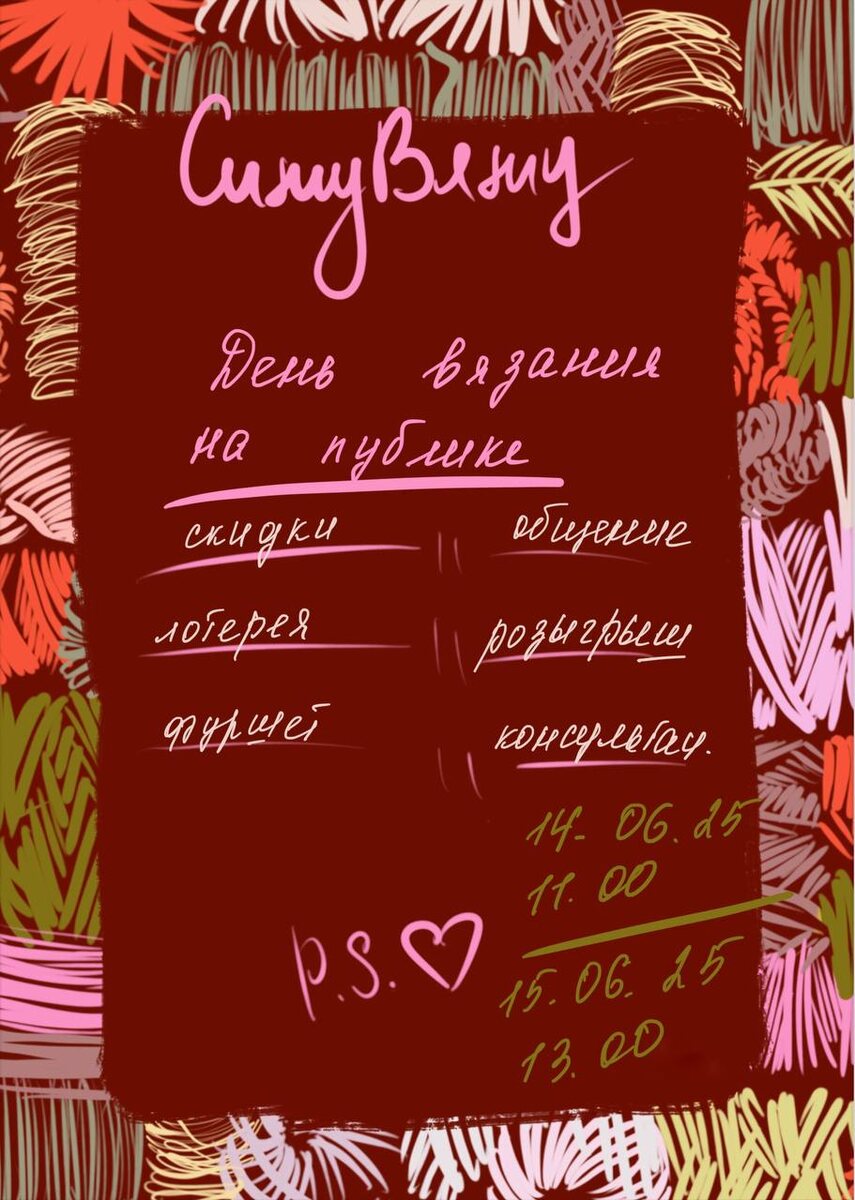 СижуВяжу
День вязания
на публике
скидки
общение
лотерея
розыгрыш
фуршет
консультац.
14.06.25
11.00
15.06.25
13.00
P.S.♡